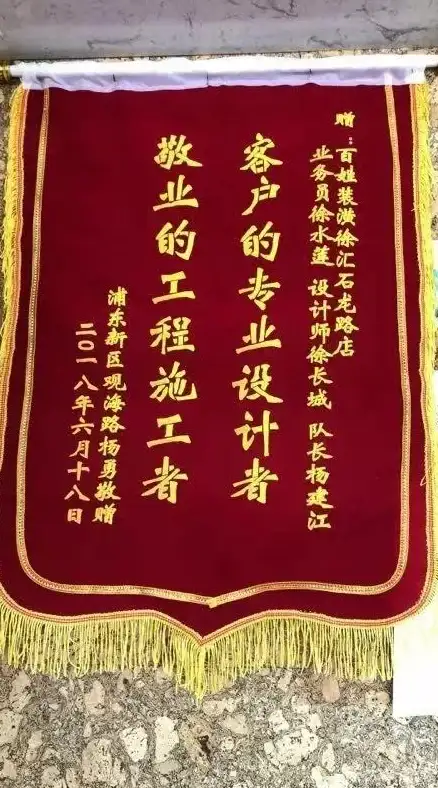 赠：百姓装潢徐汇石龙路店
业务员徐水莲 设计师徐长城 队长杨建江
客户的专业设计者
敬业的工程施工者
浦东新区观海路杨勇敬赠
二〇一八年六月十八日